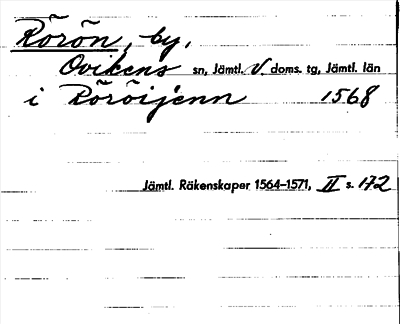 Rörön, by,
Ovikens sn, Jämtl. V. doms. tg, Jämtl. län
i Röröijenn 1568
Jämtl. Räkenskaper 1564–1571, II s. 172